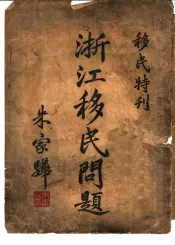 移民特刊
浙江移民問題
朱家驊